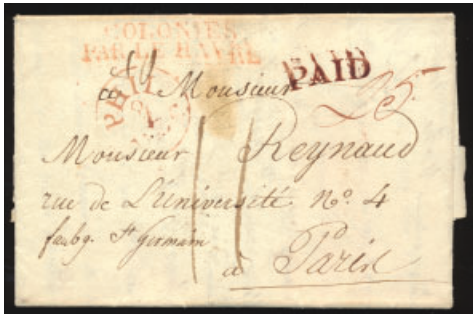 COLONIES
PAR LE HAVRE
PAID
PHIL
25
A Monsieur
Monsieur Reynaud
rue de L'Université No. 4
faubg. St Germain
à Paris